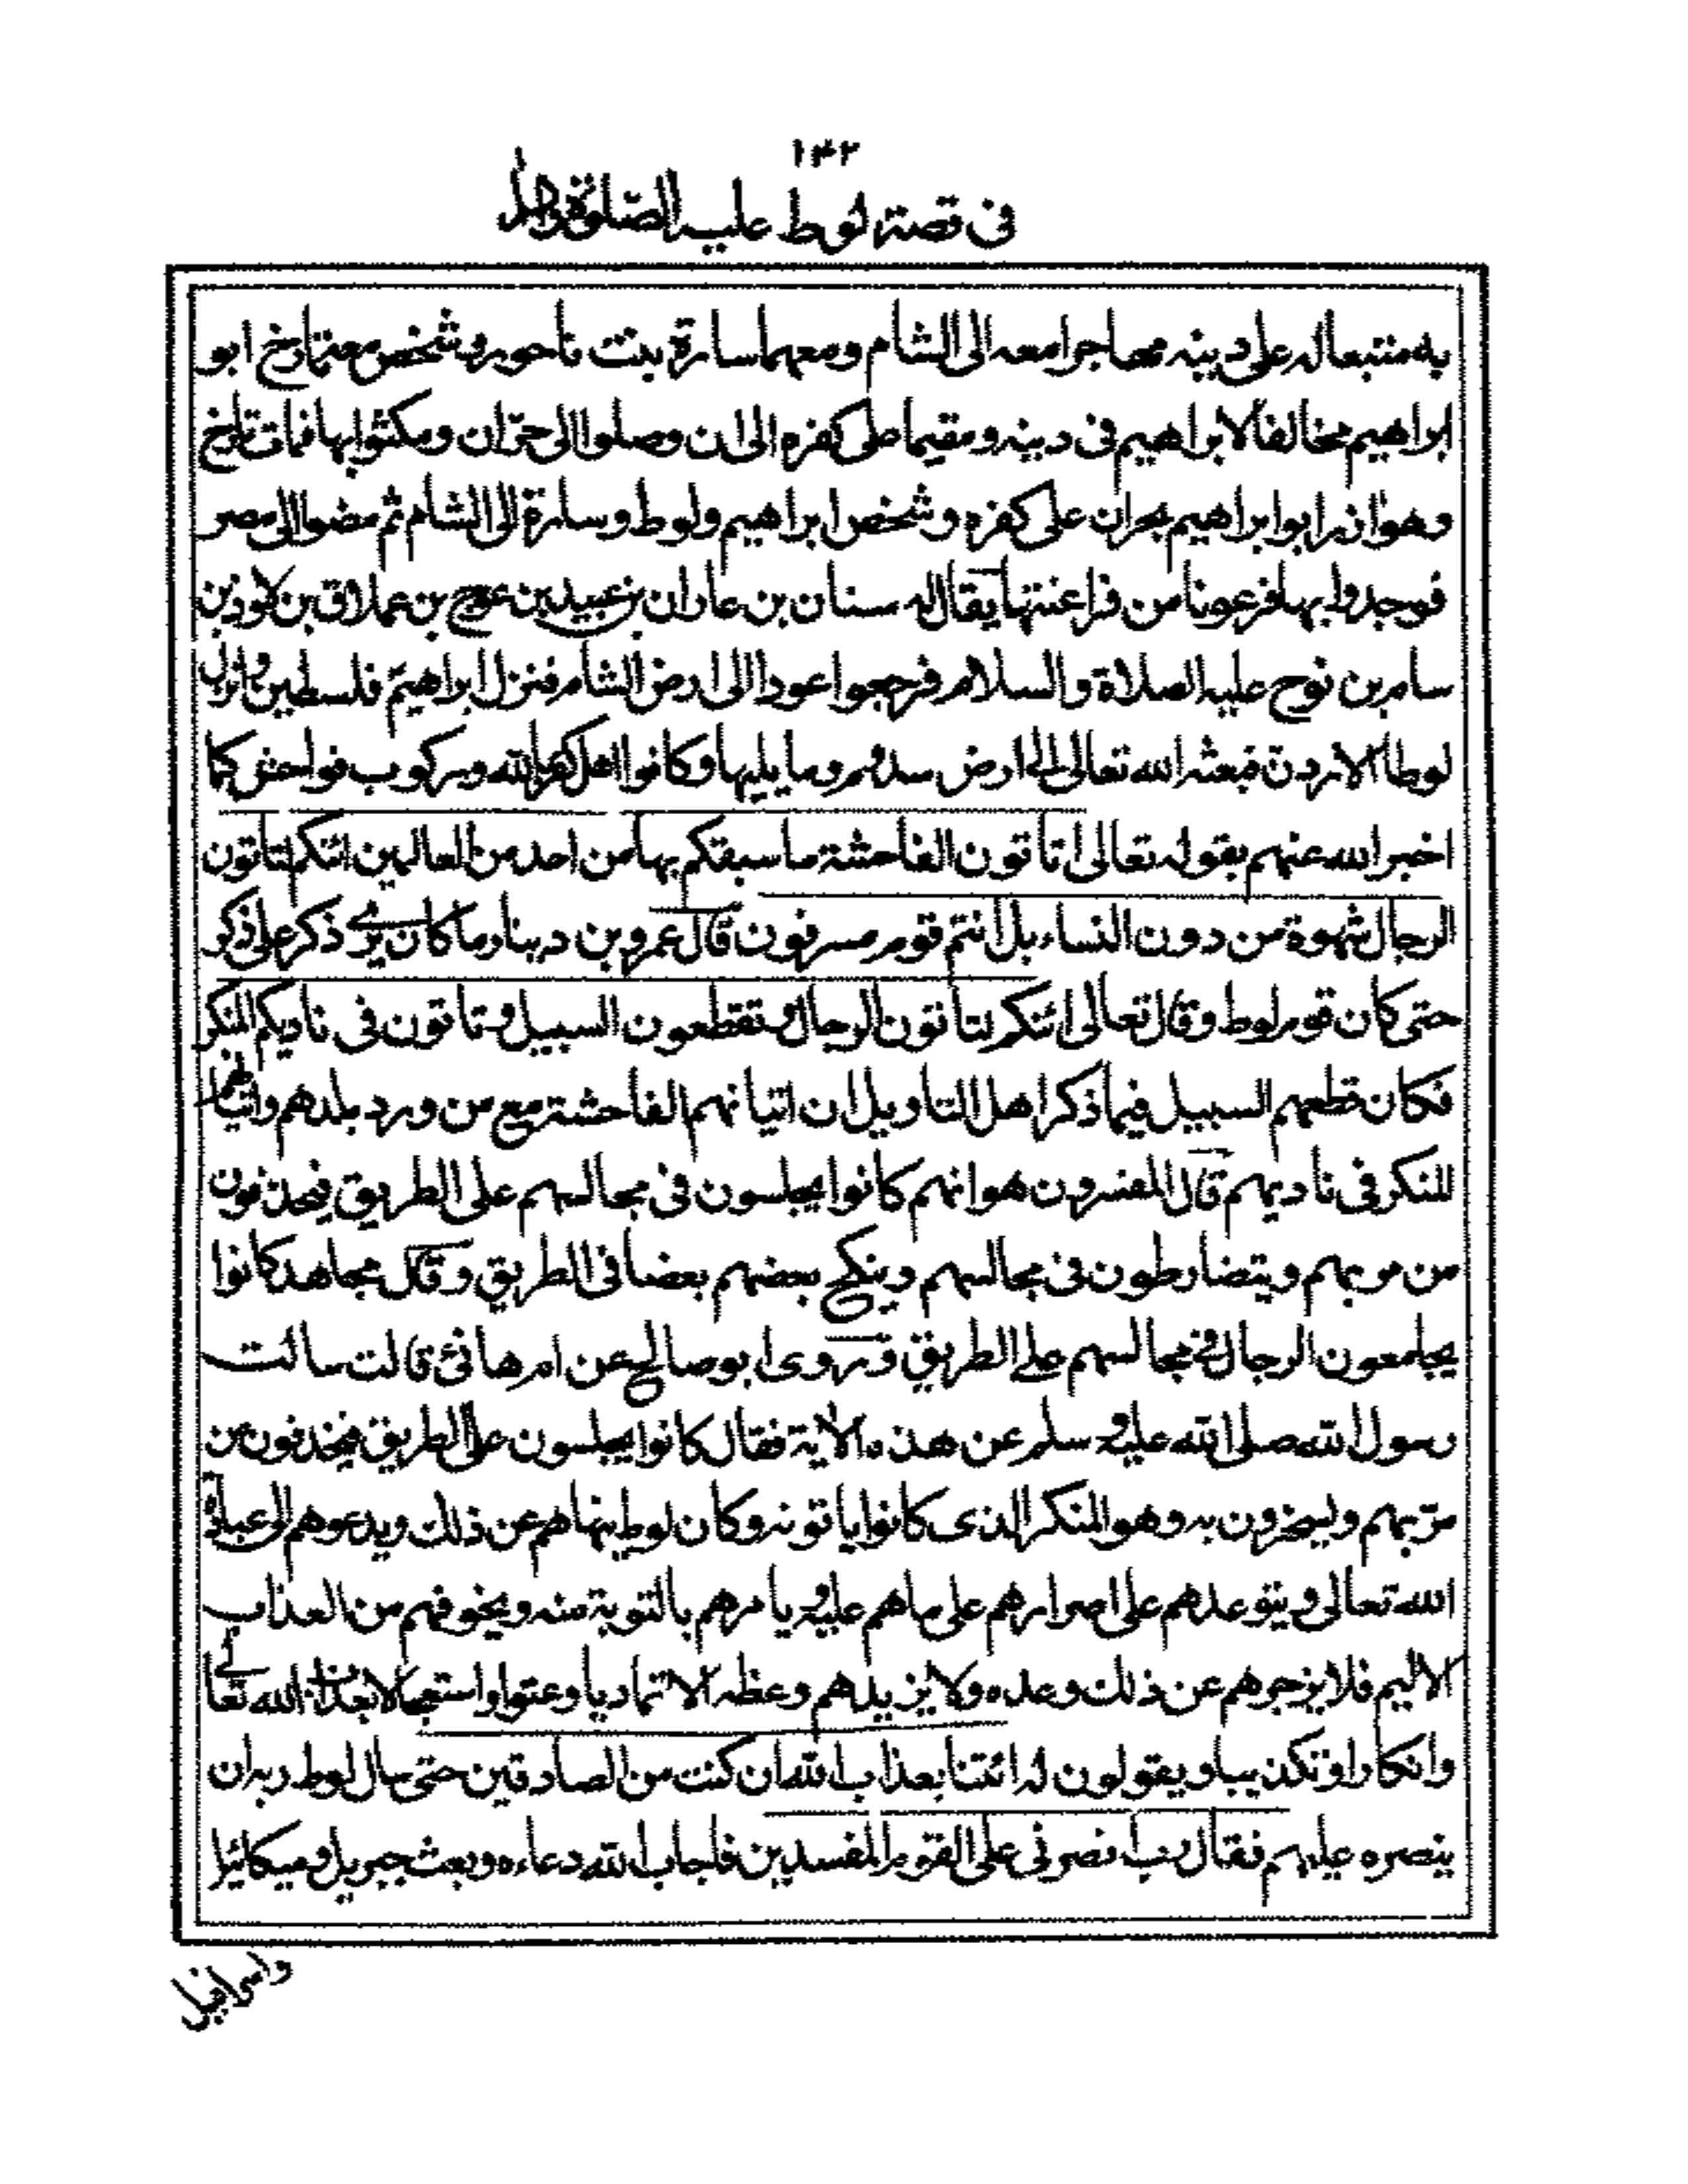 ١٤٢
فى قصة لوط عليه الصلوة والسلام
به متبعا له على دينه مهاجرا معه الى الشام ومعهما سارة بنت ناحور وشخص معهم تارخ ابو
ابراهيم مخالفا لابراهيم فى دينه ومقيما على كفره الى ان وصلوا الى حرّان ومكثوا بها فمات تارخ
وهو ازر ابو ابراهيم بحران على كفره وشخص ابراهيم ولوط وسارة الى الشام ثم مضوا الى مصر
فوجدوا بها فرعونا من فراعنتها يقال له سنان بن عاران بن عبيد بن عوج بن عملاق بن لاوذ بن
سام بن نوح عليه الصلاة والسلام فرجعوا عودا الى ارض الشام فنزل ابراهيم فلسطين وانزل
لوطا الاردن فبعثه الله تعالى الى ارض سدوم وما يليها وكانوا اهل كفر بالله وركوب فواحش كما
اخبر الله عنهم بقوله تعالى اتاتون الفاحشة ما سبقكم بها من احد من العالمين ائنكم لتاتون
الرجال شهوة من دون النساء بل انتم قوم مسرفون قال عمرو بن دينار ما كان يرى ذكر على ذكر
حتى كان قوم لوط وقال تعالى ائنكم لتاتون الرجال وتقطعون السبيل وتاتون فى ناديكم المنكر
فكان قطعهم السبيل فيما ذكر اهل التاويل ان اتيانهم الفاحشة مع من ورد بلدهم واتيانهم
المنكر فى ناديهم قال المفسرون هو انهم كانوا يجلسون فى مجالسهم على الطريق فيحذفون
من مر بهم ويتضارطون فى مجالسهم وينكح بعضهم بعضا فى الطريق وقال مجاهد كانوا
يجامعون الرجال فى مجالسهم على الطريق وروى ابو صالح عن ام هانئ قالت سالت
رسول الله صلى الله عليه وسلم عن هذه الاية فقال كانوا يجلسون على الطريق فيحذفون من
مرّ بهم ويسخرون به وهو المنكر الذى كانوا ياتونه وكان لوط ينهاهم عن ذلك ويدعوهم الى عبادة
الله تعالى ويتوعدهم على اصرارهم على ما هم عليه ويامرهم بالتوبة منه ويخوفهم من العذاب
الاليم فلا يزجرهم عن ذلك وعده ولا يزيدهم وعظه الا تماديا وعتوا واستعجالا بعذاب الله تعالى
وانكارا وتكذيبا ويقولون له ائتنا بعذاب الله ان كنت من الصادقين حتى سال لوط ربه ان
ينصره عليهم فقال رب انصرنى على القوم المفسدين فاجاب الله دعاءه وبعث جبريل وميكائيل
واسرافيل